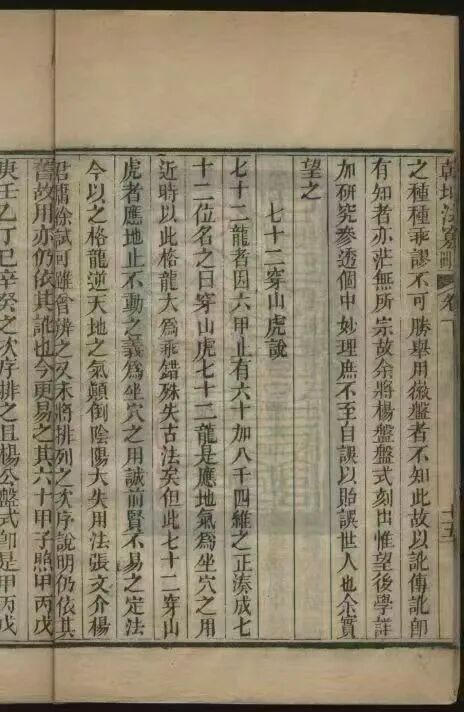 乾坤法竅 卷下 十五
之種種乖謬不可勝舉用徽盤者不知此故以訛傳訛卽
有知者亦茫無所宗故余將楊盤盤式刻出惟望後學詳
加研究參透個中妙理庶不至自誤以貽誤世人也余實
望之
七十二穿山虎說
七十二龍者因六甲止有六十加八千四維之正湊成七
十二位名之曰穿山虎七十二龍是應地氣爲坐穴之用
近時以此格龍大爲乖錯殊失古法矣但此七十二穿山
虎者應地止不動之義爲坐穴之用誠前賢不易之定法
今以之格龍逆天地之氣顛倒陰陽大失用法張文介楊
君墉徐試可雖曾辨之又未將排列之次序說明仍依其
舊故用亦仍依其訛也今更易之其六十甲子照甲丙戊
庚壬乙丁己辛癸之次序排之且楊公盤式卽是甲丙戊